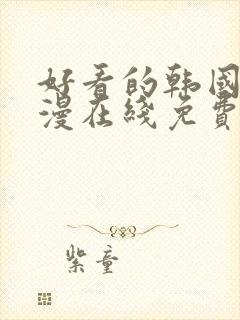 好看的韩国
漫在线免費
紫童